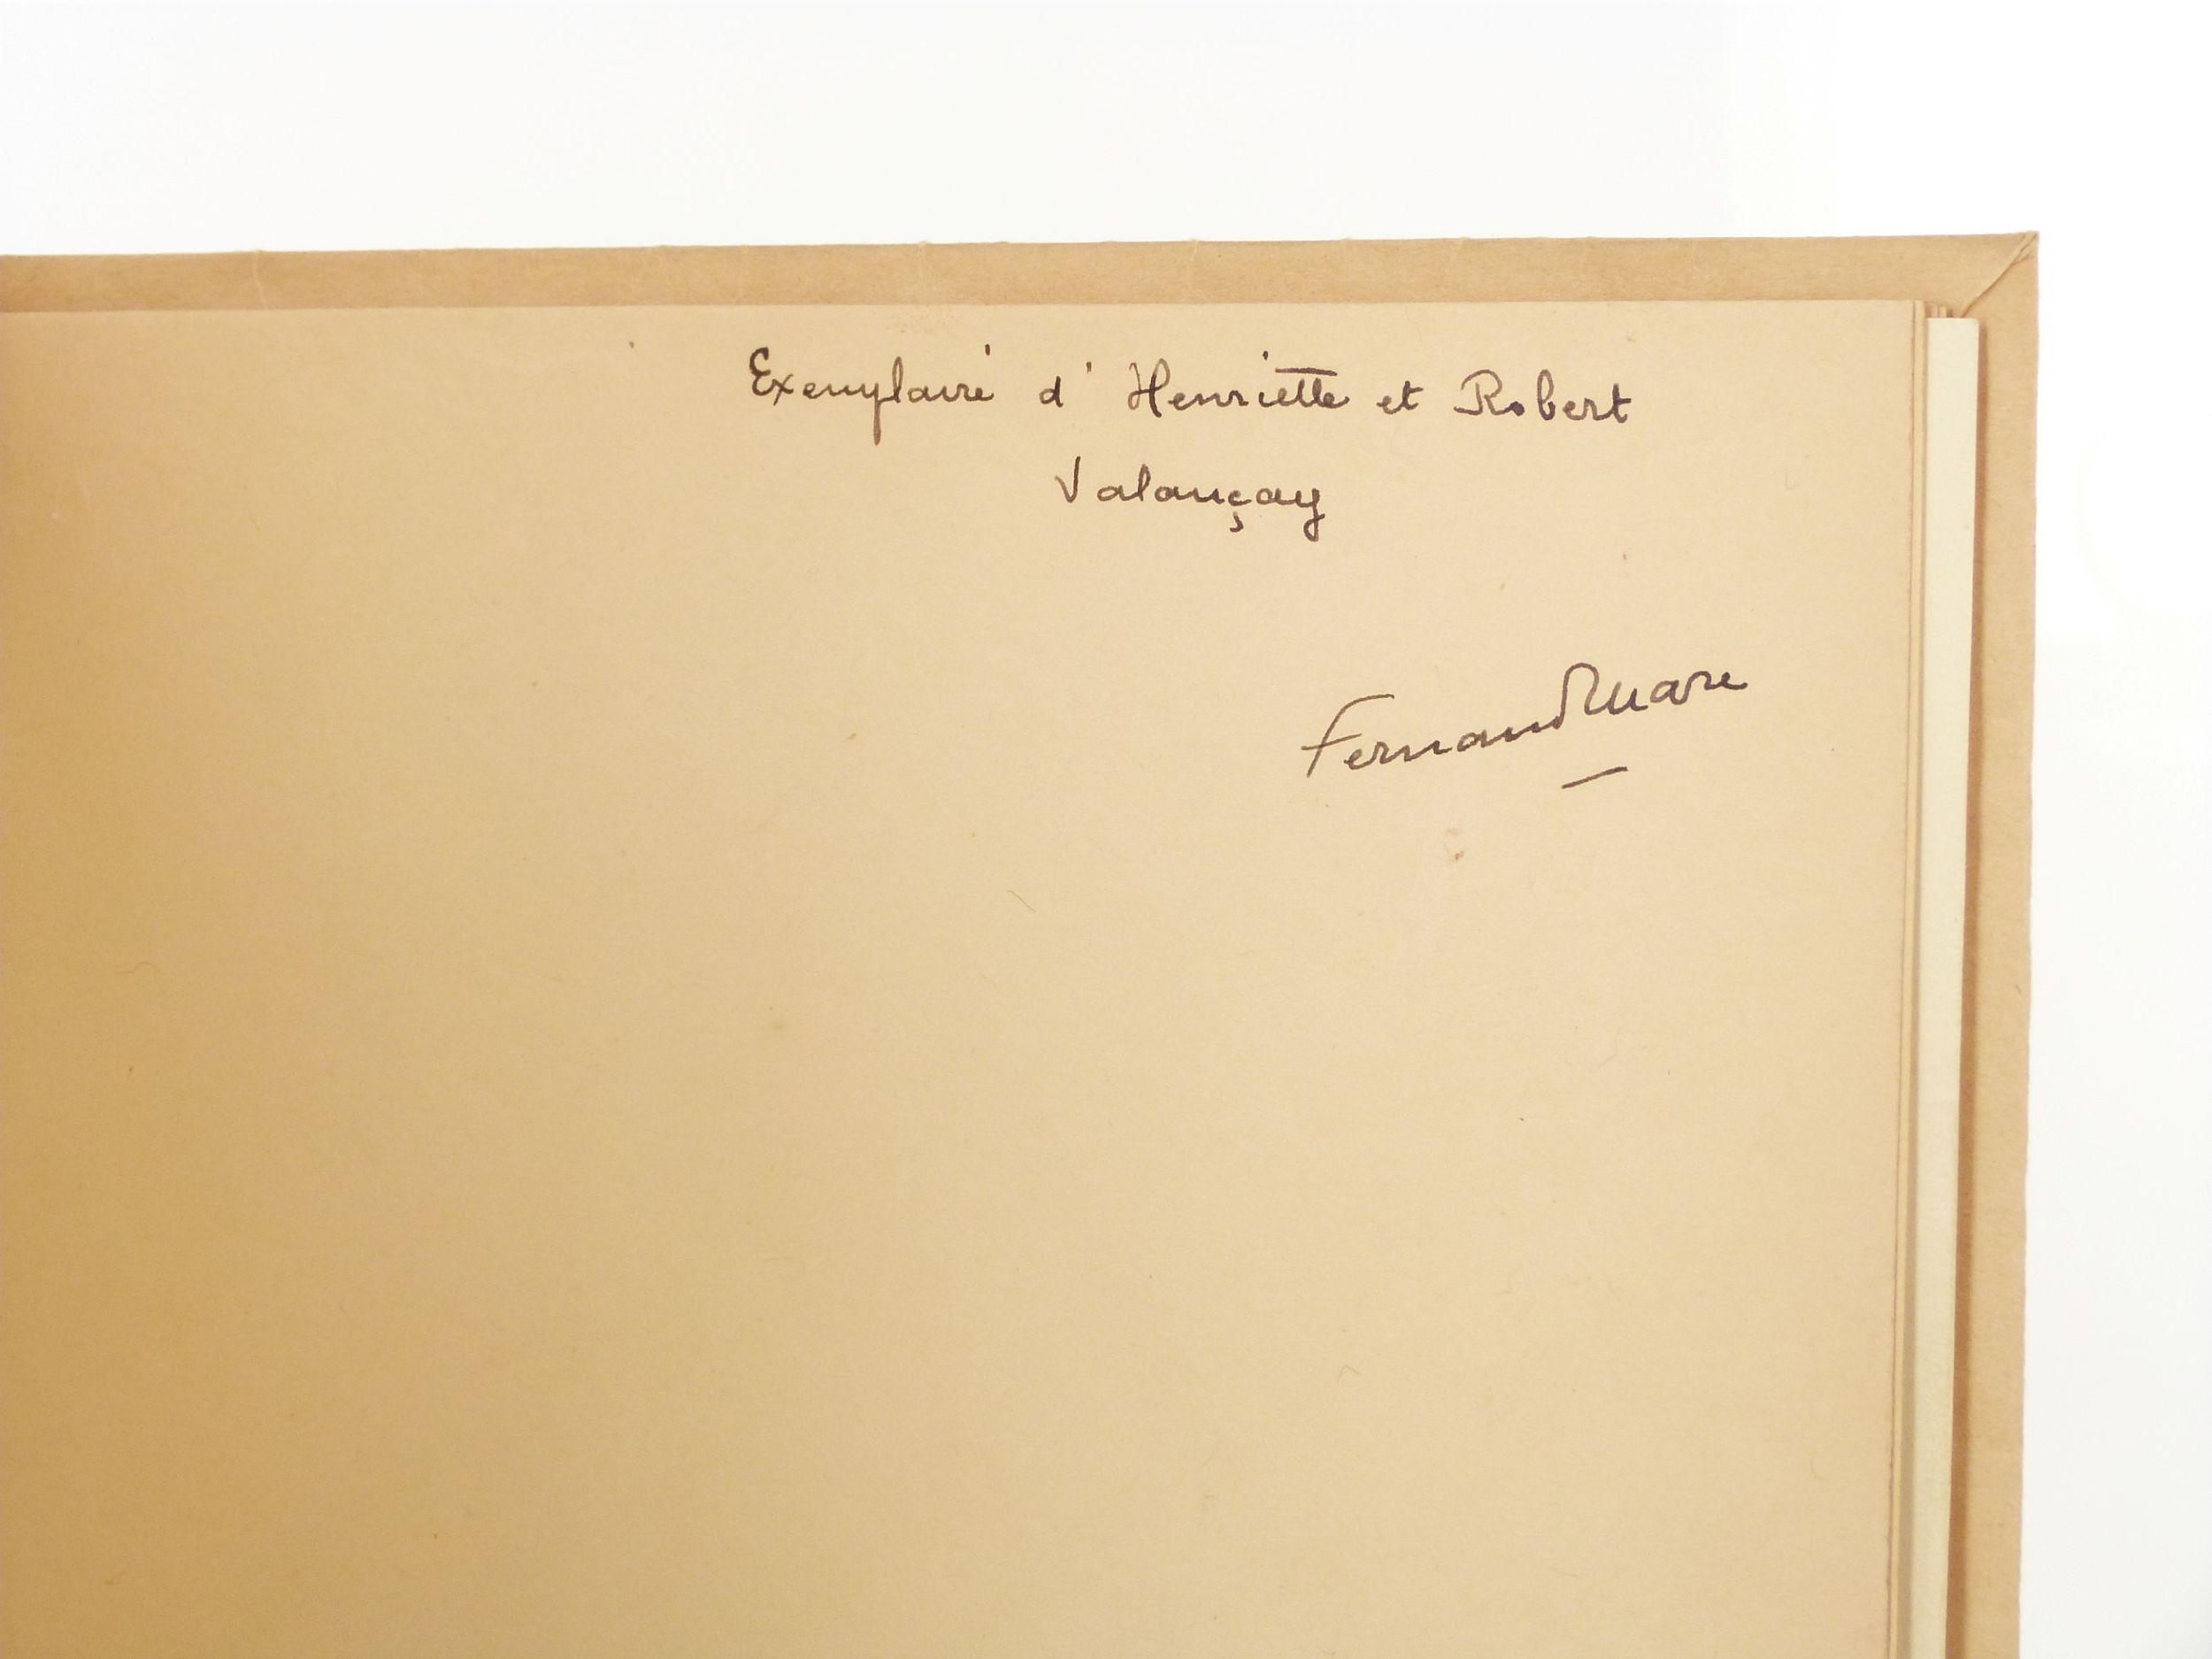 Exemplaire d'Henriette et Robert
Valançay
Fernand Marc